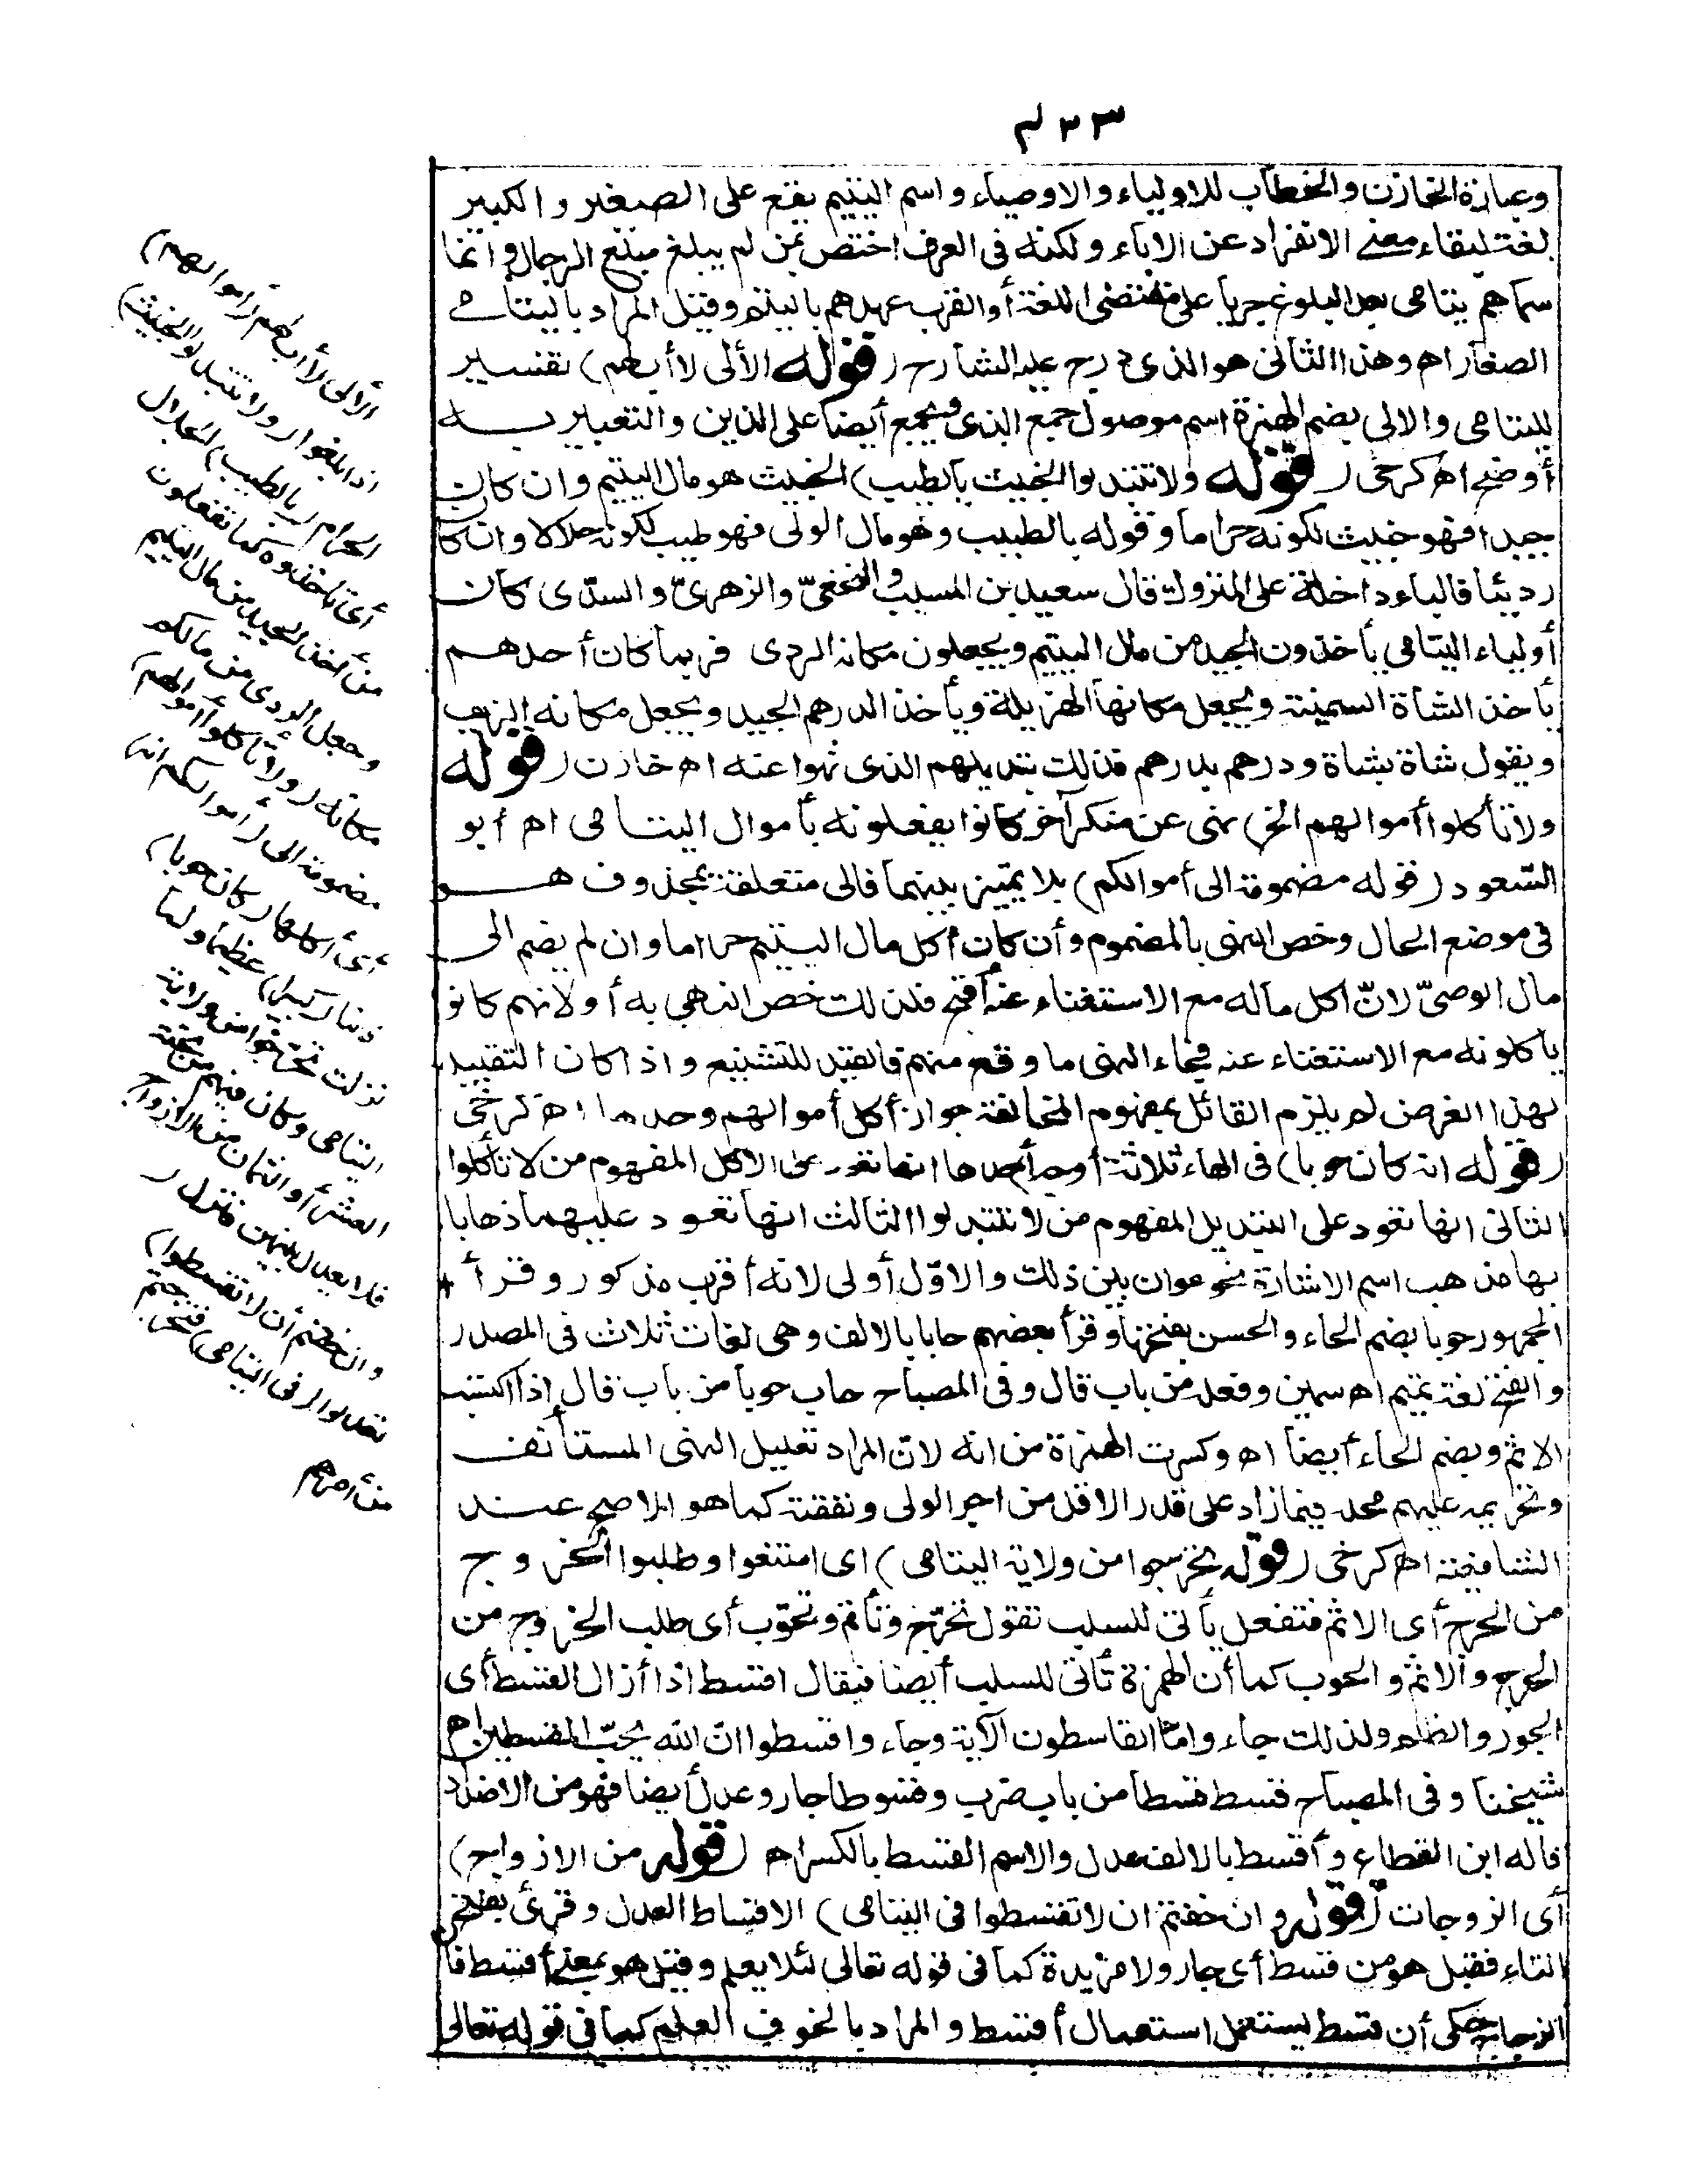 ٤٣٣
وعبارة الخازن والخطاب للاولياء والاوصياء واسم اليتيم يقع على الصغير والكبير
لغة لبقاء معنى الانفراد عن الاباء ولكنه فى العرف اختص بمن لم يبلغ مبلغ الرجال وانما
سماهم يتامى بعد البلوغ جريا على مقتضى اللغة أو القرب عهدهم باليتم وقيل المراد باليتامى
الصغار اه وهذا الثانى هو الذى درج عليه الشارح (قوله الألى لا أب لهم) تفسير
لليتامى والالى بضم الهمزة اسم موصول جمع الذى ويجمع أيضا على الذين والتعبير به
أوضح اه كرخى (قوله ولا تتبدلوا الخبيث بالطيب) الخبيث هو مال اليتيم وان كان
جيدا فهو خبيث لكونه حراما وقوله بالطيب وهو مال الولى فهو طيب لكونه حلالا وان كان
رديئا فالباء داخلة على المتروك قال سعيد بن المسيب والنخعىّ والزهرىّ والسدّى كان
أولياء اليتامى يأخذون الجيد من مال اليتيم ويجعلون مكانه الردى فربما كان أحدهم
يأخذ الشاة السمينة ويجعل مكانها الهزيلة ويأخذ الدرهم الجيد ويجعل مكانه الزيف
ويقول شاة بشاة ودرهم بدرهم فذلك تبديلهم الذى نهوا عنه اه خازن (قوله
ولا تأكلوا أموالهم الخ) نهى عن منكر آخر كانوا يفعلونه بأموال اليتامى اه أبو
السّعود (قوله مضمومة الى أموالكم) بلا تمييز بينهما فالى متعلقة بمحذوف هو
فى موضع الحال وخص النهى بالمضموم وأن كان أكل مال اليتيم حراما وان لم يضم الى
مال الوصىّ لانّ اكل ماله مع الاستغناء عنه أقبح فلذلك خص النهى به أو لانهم كانوا
ياكلونه مع الاستغناء عنه فجاء النهى ما وقع منهم فالقيد للتشنيع واذا كان التقييد
لهذا الغرض لم يلزم القائل بمفهوم المخالفة جواز أكل أموالهم وحدها اه كرخى
(قوله انه كان حوبا) فى الهاء ثلاثة أوجه أحدها انها تعود على الاكل المفهوم من لا تأكلوا
الثانى انها تعود على التبديل المفهوم من لا تتبدلوا الثالث انها تعود عليهما ذهابا
بها مذهب اسم الاشارة نحو عوان بين ذلك والاوّل أولى لانه أقرب مذكور وقرأ
الجمهور حوبا بضم الحاء والحسن بفتحها وقرأ بعضهم حابا بالالف وهى لغات ثلاث فى المصدر
والفتح لغة تميم اه سمين وفعله من باب قال وفى المصباح حاب حوبا من باب قال إذا اكتسب
الاثم وبضم الحاء أيضا اه وكسرت الهمزة من انه لانّ المراد تعليل النهى المستأنف
وتحريمه عليهم محله فيما زاد على قدر الاقل من اجر الولى ونفقته كما هو الاصح عند
الشافعية اه كرخى (قوله تحرجوا من ولاية اليتامى) اى امتنعوا وطلبوا الخروج
من الحرج أى الاثم فتفعل يأتى للسلب تقول تحرّج وتأثم وتحوّب أى طلب الخروج من
الحرج والاثم والحوب كما أن الهمزة تأتى للسلب أيضا فيقال اقسط اذا أزال القسط أى
الجور والظلم ولذلك جاء وامّا القاسطون الآية وجاء واقسطوا انّ الله يحبّ المقسطين اه
شيخنا وفى المصباح قسط قسطا من باب ضرب وقسوطا جار وعدل أيضا فهو من الاضداد
قاله ابن القطاع وأقسط بالالف عدل والاسم القسط بالكسر اه (قوله من الازواج)
أى الزوجات (قوله وان خفتم ان لا تقسطوا فى اليتامى) الاقساط العدل وقرئ بفتح
التاء فقيل هو من قسط أى جار ولا مزيدة كما فى قوله تعالى لئلا يعلم وقيل هو بمعنى أقسط فان
الزجاج حكى أن قسط يستعمل استعمال أقسط والمراد بالخوف العلم كما فى قوله تعالى
الألى لا أب لهم (أموالهم)
اذا بلغوا (ولا تتبدلوا الخبيث)
الحرام (بالطيب) الحلال
أى تأخذوه كما تفعلون
من أخذ الجيد من مال اليتيم
وجعل الردى من مالكم
مكانه (ولا تأكلوا أموالهم)
مضمومة الى (أموالكم انه)
أى أكلها (كان حوبا)
ذنبا (كبيرا) عظيما ولما
نزلت تحرّجوا من ولاية
اليتامى وكان فيهم من تحته
العشر أو الثمان من الازواج
فلا يعدل بينهن فنزل (
وان خفتم أن لا تقسطوا)
تعدلوا (فى اليتامى) فتحرجتم
من أمرهم